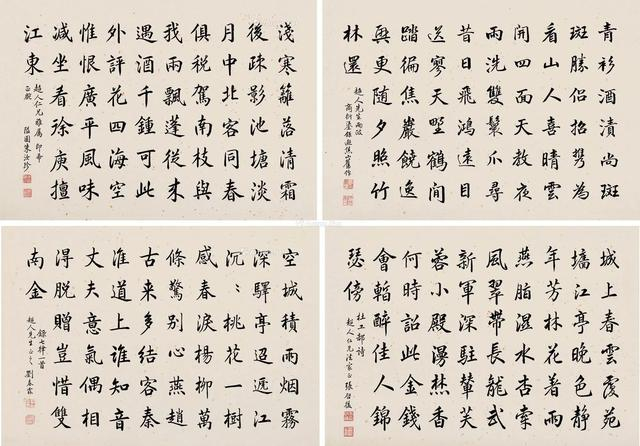 淺寒籬落清霜
後疎影池塘淡
月中北客同春
俱税駕南枝與
我兩飄蓬從來
遇酒千鍾可此
外評花四海空
惟恨廣平風味
減坐看徐庾擅
江東
超人仁兄雅屬 即希
正腕 隘園朱汝珍
青衫酒漬尚斑
斑勝侶招攜為
看山人喜晴雲
開四面天教夜
雨洗雙鬟爪尋
昔日飛鴻遠目
送寥天野鶴閒
踏徧焦巖饒逸
興更隨夕照竹
林還
超人先生兩政
商衍鎏錄遊焦山舊作
空城積雨烟霧
深驛亭迢遞江
沉〻桃花一樹
感春淚楊柳萬
條驚別心燕趙
古來多結客秦
淮道上誰知音
丈夫意氣偶相
得脫贈豈惜雙
南金
錄七律一首
超人先生正之 劉春霖
城上春雲覆苑
墻江亭晚色靜
年芳林花著雨
燕脂濕水荇牽
風翠帶長龍武
新軍深駐輦芙
蓉小殿漫焚香
何時詔此金錢
會暫醉佳人錦
瑟傍
杜工部詩
超人仁兄法家正 張啓後